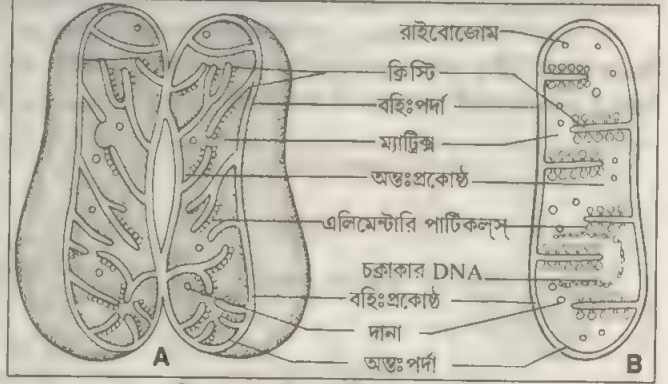 রাইবোজোম
ক্রিস্টি
বহিঃপর্দা
ম্যাট্রিক্স
অন্তঃপ্রকোষ্ঠ
এলিমেন্টারি পার্টিকল্‌স্
চক্রাকার DNA
বহিঃপ্রকোষ্ঠ
দানা
অন্তঃপর্দা
A
B